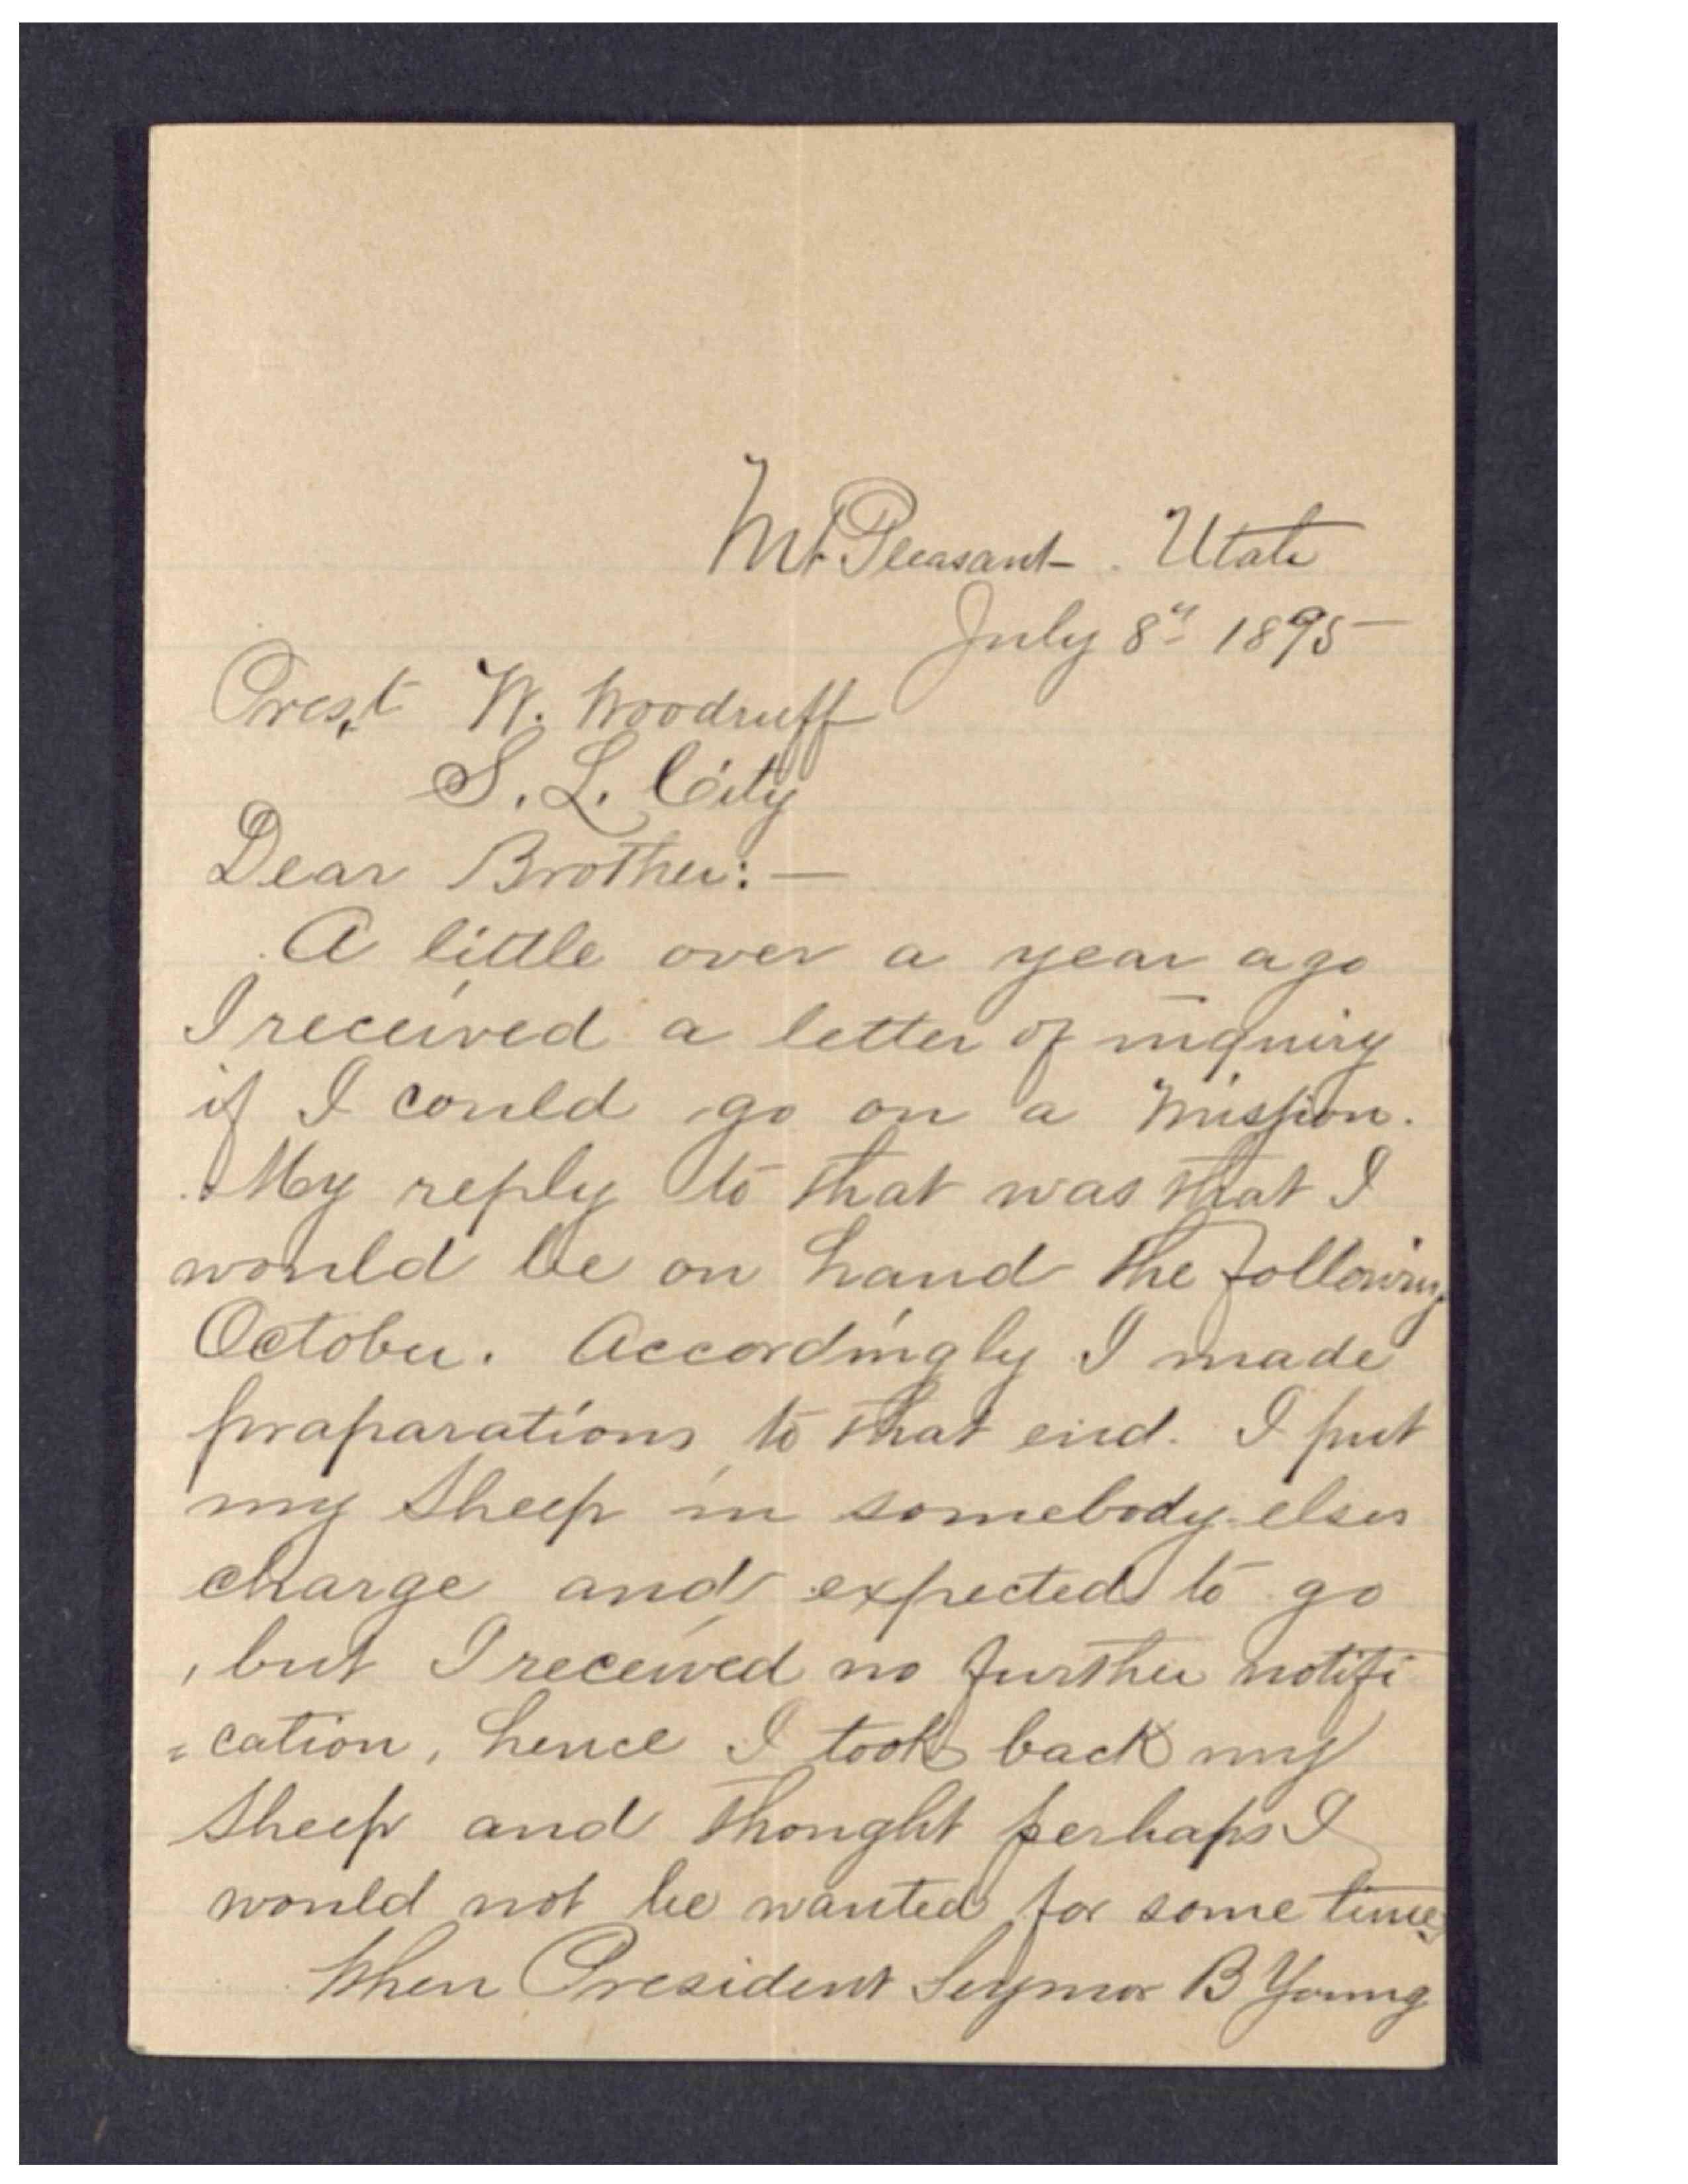 Mt Pleasant. Utah
July 8" 1895
Pres,t W. Woodruff
S. L. City
Dear Brother:—
A little over a year ago
I received a letter of inquiry
if I could go on a Mission.
My reply to that was that I
would be on hand the following
October. Accordingly I made
praparations to that end. I put
my sheep in somebody elses
charge and expected to go
, but I received no further notifi
=cation, hence I took back my
sheep and thought perhaps I
would not be wanted for some time,
When President Seymor B Young